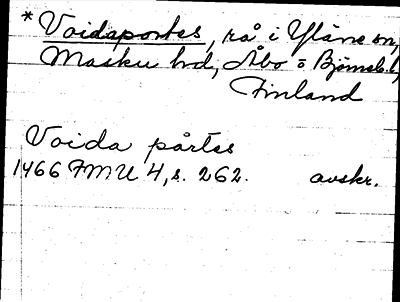 * Voidaportes, rå i Yläne sn,
Masku hd, Åbo o Björneb. l,
Finland
Voida pårtes
1466 FMU 4, s. 262. avskr.